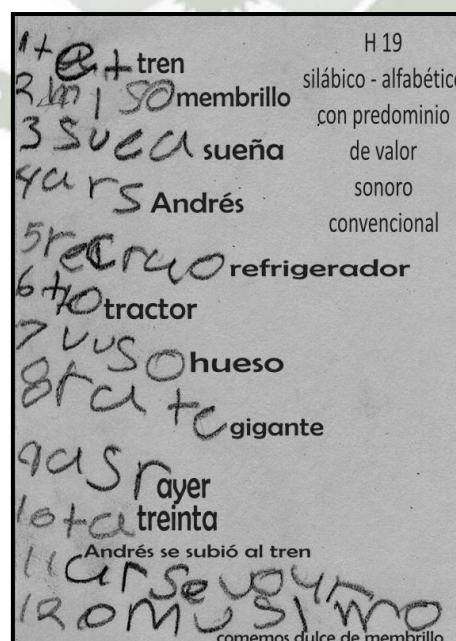 H 19
silábico - alfabético
con predominio
de valor
sonoro
convencional
1 tren
2 miso membrillo
3 suea sueña
4 ars Andrés
5 refrigerador
6 tractor
7 vuso hueso
8 rate gigante
9 asr ayer
10 ta treinta
Andrés se subió al tren
11
12 comemos dulce de membrillo